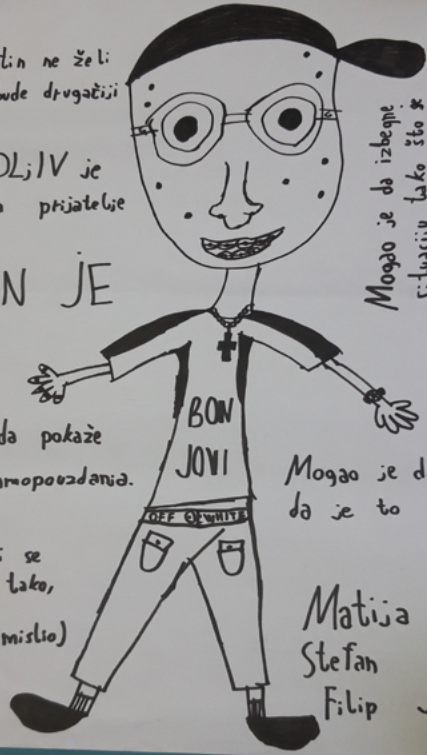 tin ne želi
bude drugačiji
OLjIV je
prijatelje
N JE
da pokaže
samopouzdanja.
se
tako,
mislio)
BON
JOVI
OFF WHITE
Mogao je da izbegne
situaciju tako što
Mogao je d
da je to
Matija
Stefan
Filip